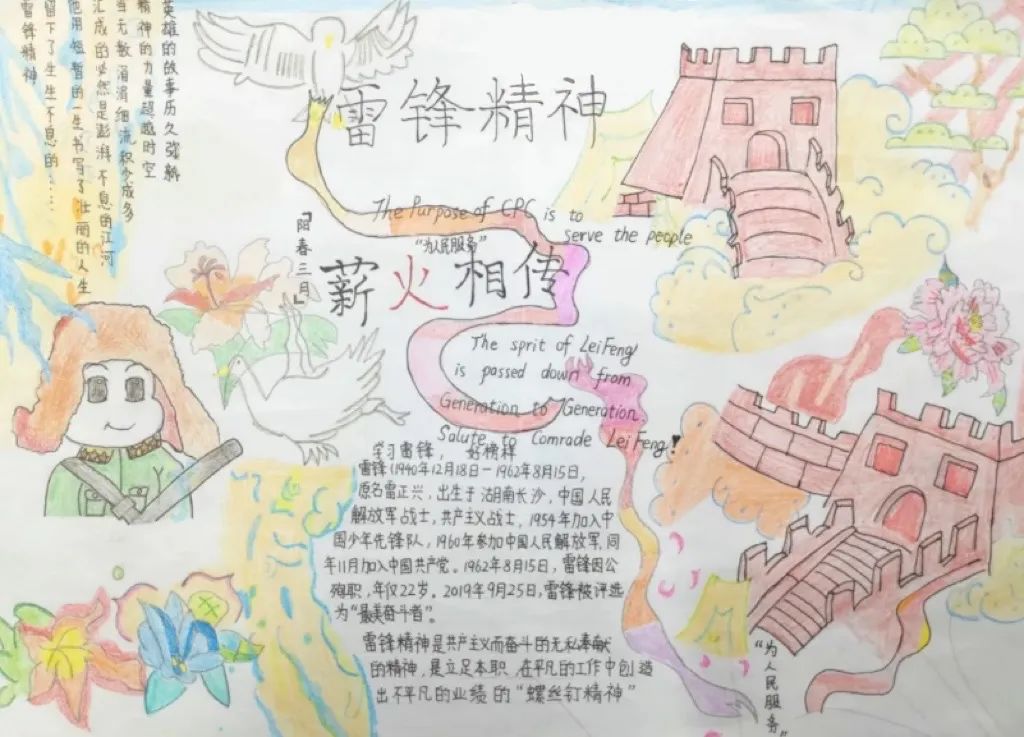 英雄的故事历久弥新
精神的力量超越时空
当无数涓涓细流积少成多
汇成的必然是澎湃不息的江河
他用短暂的一生书写了壮丽的人生
留下了生生不息的……
雷锋精神
雷锋精神
The Purpose of CPC is to
serve the people
“为人民服务”
『阳春三月』
薪火相传
The sprit of LeiFeng
is passed down from
Generation to Generation.
Salute to Comrade Lei Feng!
学习雷锋，好榜样
雷锋(1940年12月18日—1962年8月15日，
原名雷正兴，出生于湖南长沙，中国人民
解放军战士，共产主义战士，1954年加入中
国少年先锋队，1960年参加中国人民解放军，同
年11月加入中国共产党。1962年8月15日，雷锋因公
殉职，年仅22岁。2019年9月25日，雷锋被评选
为“最美奋斗者”。
雷锋精神是共产主义而奋斗的无私奉献
的精神，是立足本职、在平凡的工作中创造
出不平凡的业绩的“螺丝钉精神”
“为人民服务”